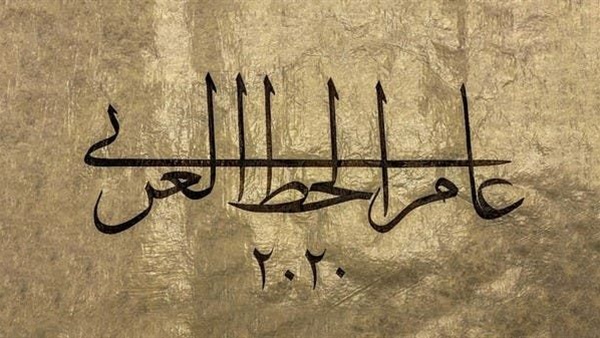 عام الخط العربي
٢٠٢٠